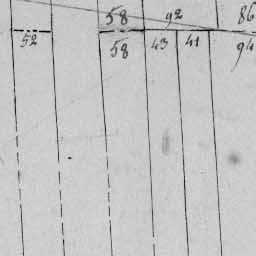 58 92 86
52 58 43 41 94